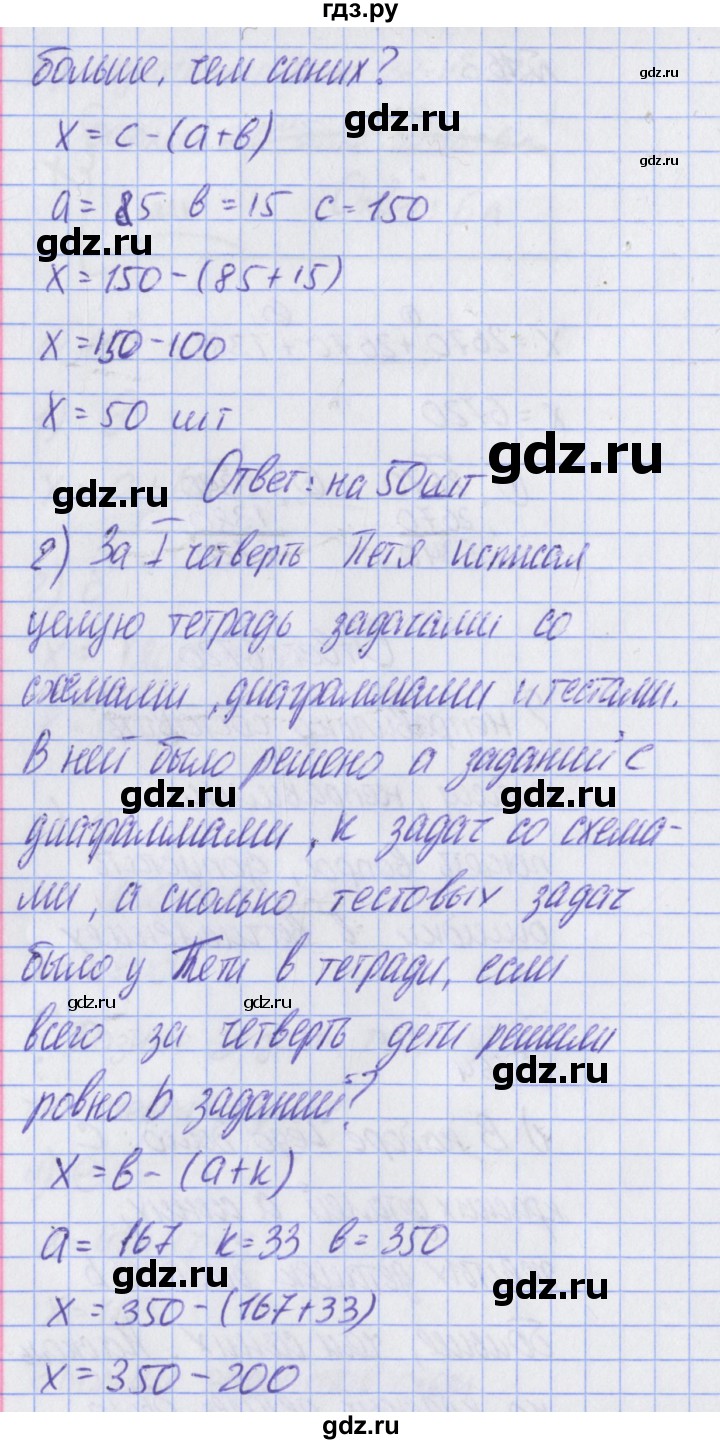 гдз.ру
больше, чем синих?
gdz.ru
x = c - (a + в)
gdz.ru
gdz.ru
a = 85 в = 15 c = 150
gdz.ru
gdz.ru
x = 150 - (85 + 15)
x = 150 - 100
x = 50 шт
gdz.ru
Ответ: на 50 шт
gdz.ru
2) За I четверть Петя исписал
целую тетрадь задачами со
схемами, диаграммами и тестами.
В ней было решено а заданий с
gdz.ru
gdz.ru
диаграммами, к задач со схема-
ми, а сколько тестовых задач
было у Пети в тетради, если
gdz.ru
gdz.ru
gdz.ru
всего за четверть дети решили
ровно b заданий?
x = в - (a + к)
a = 167 к = 33 в = 350
gdz.ru
gdz.ru
x = 350 - (167 + 33)
x = 350 - 200
gdz.ru